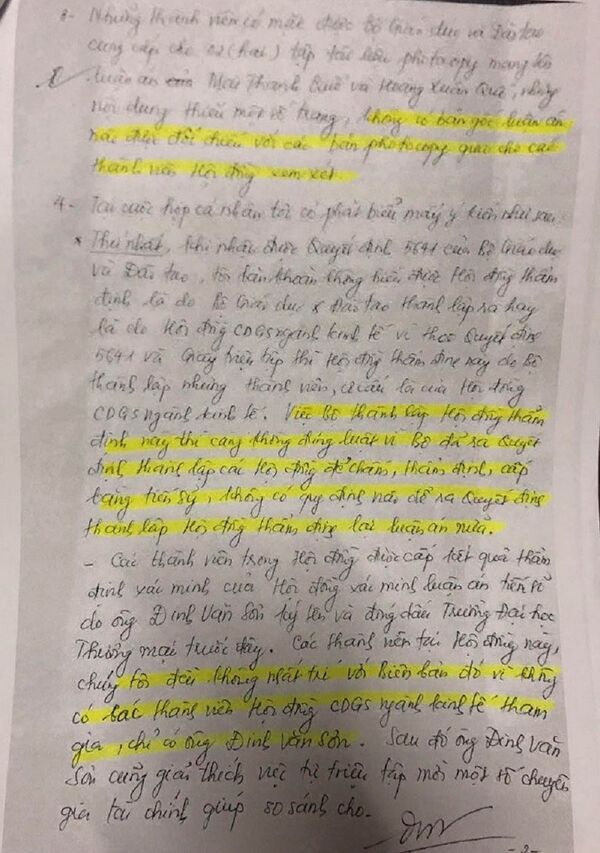 3- Những thành viên có mặt được Bộ Giáo dục và Đào tạo
cung cấp cho 02 (hai) tập tài liệu photocopy mang tên
luận án của Mai Thanh Quế và Hoàng Xuân Quế, nhưng
nội dung thiếu một số trang, không có bản gốc luận án
nào để đối chiếu với các bản photocopy giao cho các
thành viên Hội đồng xem xét.
4- Tại cuộc họp cá nhân tôi có phát biểu mấy ý kiến như sau
* Thứ nhất, khi nhận được Quyết định 5641 của Bộ Giáo dục
và Đào tạo, tôi băn khoăn không hiểu được Hội đồng thẩm
định là do Bộ Giáo dục & Đào tạo thành lập ra hay
là do Hội đồng CDGS ngành kinh tế vì theo Quyết định
5641 và Giấy triệu tập thì Hội đồng thẩm định này do Bộ
thành lập nhưng thành viên, cơ cấu là của Hội đồng
CDGS ngành kinh tế. Việc Bộ thành lập Hội đồng thẩm
định này thì càng không đúng luật vì Bộ đã ra Quyết
định thành lập các Hội đồng để chấm, thẩm định, cấp
bằng tiến sỹ, không có quy định nào để ra Quyết định
thành lập Hội đồng thẩm định lại luận án nữa.
- Các thành viên trong Hội đồng được cấp kết quả thẩm
định xác minh của Hội đồng xác minh luận án tiến sĩ
do ông Đinh Văn Sơn ký tên và đóng dấu Trường Đại học
Thương mại trước đây. Các thành viên tại Hội đồng này,
chúng tôi đều không nhất trí với biên bản đó vì không
có các thành viên Hội đồng CDGS ngành kinh tế tham
gia, chỉ có ông Đinh Văn Sơn. Sau đó ông Đinh Văn
Sơn cũng giải thích việc tự triệu tập mời một số chuyên
gia tài chính giúp so sánh cho.
-2-